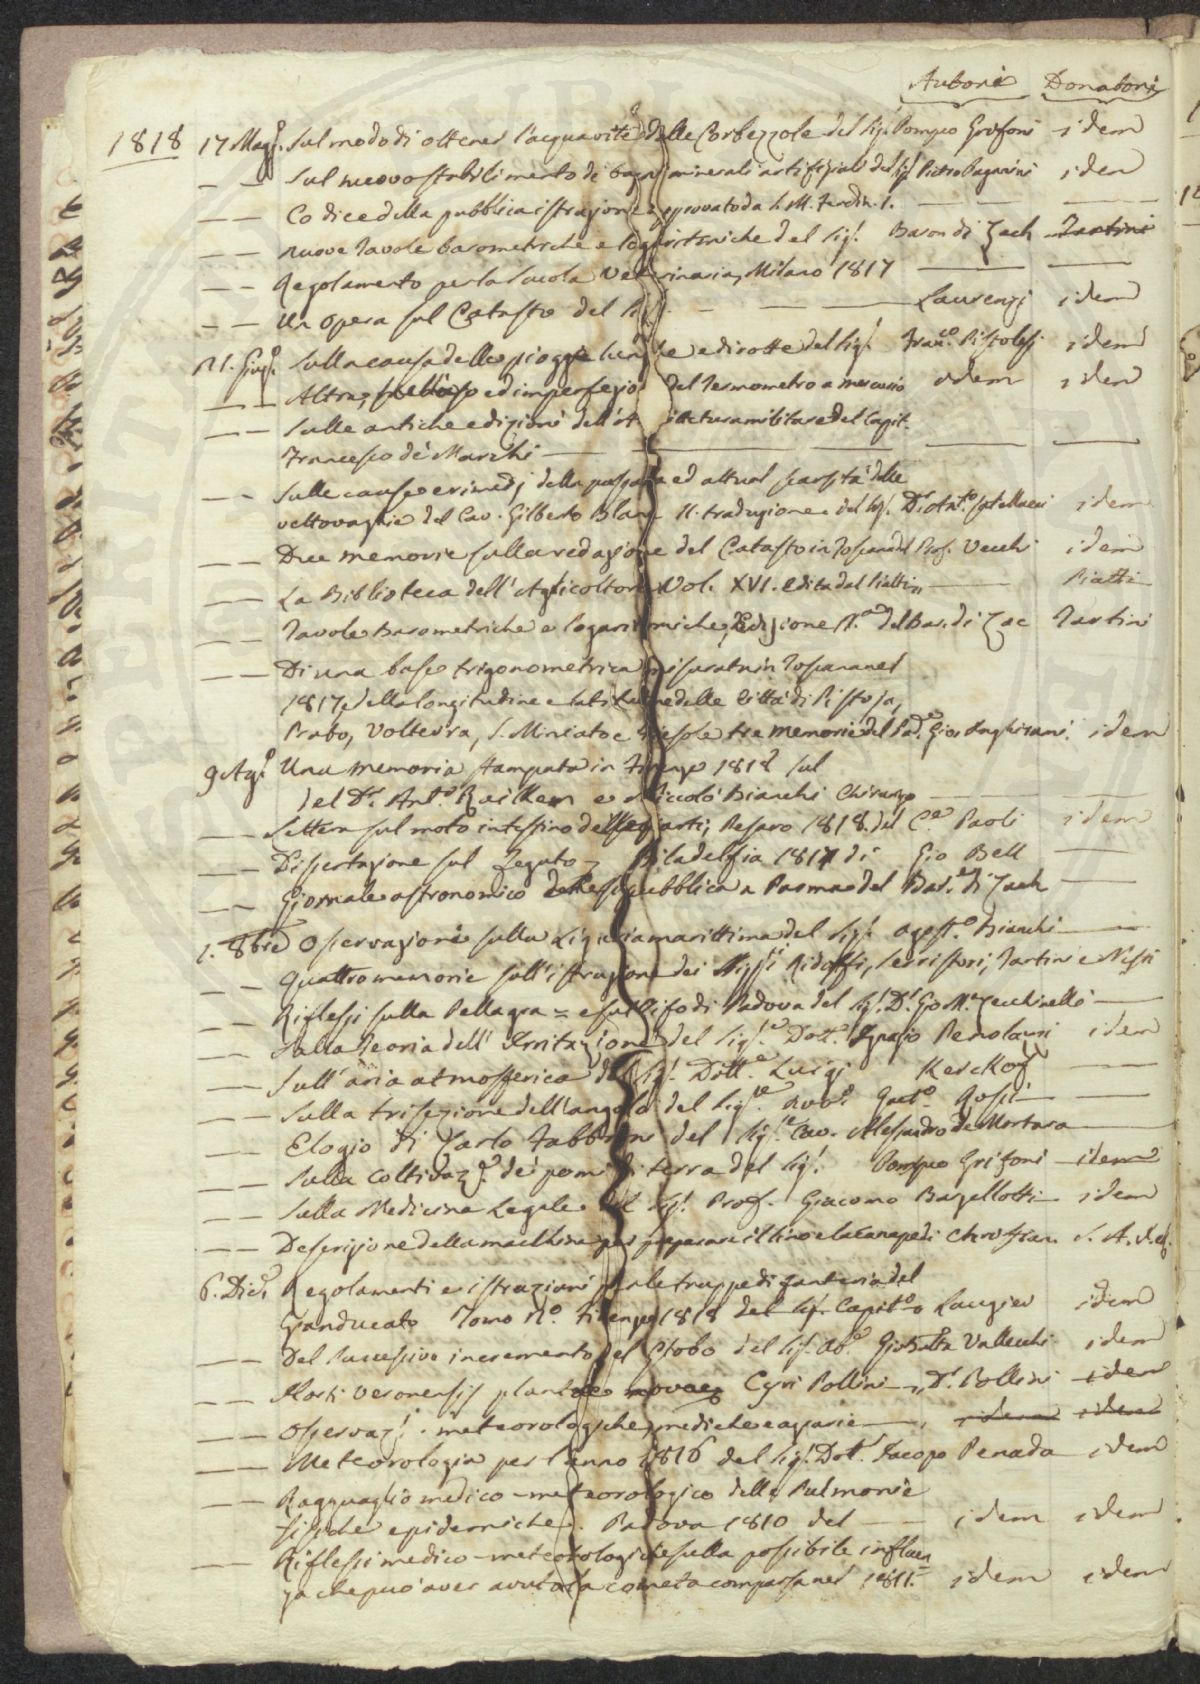 Autori Donatori
1818 17 Magg.º Sul modo di ottener l'acquavite dalle Corbezzole del Sig.r Pompeo Grifoni idem
— — Sul nuovo stabilimento di bagni minerali artifiziali del Sig.r Pietro Paganini idem
— — Codice della pubblica istruzione approvato da S. M. Ferdin. I. — — —
— — nuove Tavole barometriche e logaritmiche del Sig.r Baron di Zach Tartini
— — Regolamento per la Scuola Veterinaria, Milano 1817 — —
— — Un opera sul Catasto del Sig.r — — — Laurenzj idem
Giug.º Sulla causa delle piogge lunghe e dirotte del Sig.r Fran.co Pistolesj idem
— — Altra, ed imperfezio del Termometro a mercurio idem idem
— — Sulle antiche edizioni dell'Architettura militare del Capit.
Francesco de' Marchi — — — —
— — Sulle cause e rimedj della passata ed attual scarsità delle
vettovaglie del Cav. Gilberto Blane It. traduzione del Sig.r D.r Ant.º idem
— — Due memorie sulla redazione del Catasto in Toscana del Prof. Vecchi idem
— — La Biblioteca dell'Agricoltore Vol. XVI. edita dal Piatti — Piatti
— — Tavole Barometriche e logaritmiche, Edizione del Bar. di Zac Tartini
— — Di una base trigonometrica misurata in Toscana nel
1817, della longitudine e latitudine delle Città di Pistoja,
Prato, Volterra, S. Miniato e Fiesole tre memorie del Pad.e Gio. Inghirami idem
9 Ag.º Una memoria stampata in Firenze 1818 sul
del D.r Ant.º e Niccolò Bianchi Chirurgo — —
— — Lettera sul moto intestino delle parti, Pesaro 1818. del C.e Paoli idem
— — Dissertazione sul Fegato — Filadelfia 1817 di Gio Bell —
— — Giornale astronomico che si pubblica a Parma del Bar.e di Zach —
1. 8bre Osservazioni sulla Liguria marittima del Sig.r Agost.º Bianchi —
— — Quattro memorie sull'istruzione dei Sigg.ri Ridolfi, Serristori, Tartini e Nesti
— — Riflessi sulla Pellagra = e sul Tifo di Padova del Sig.r D.r Gio M.a Zecchinelli —
— — Sulla Teoria dell'Irritazione del Sig.r Dott.e Ignazio Penolazzi idem
— — Sull'aria atmosferica del Sig.r Dott.e Luigi Kerckof —
— — Sulla trisezione dell'angolo del Sig.re Avv.º Gaet.º Rossi — —
— — Elogio di Carlo Fabbroni del Sig.re Cav. Alessandro de Mortara —
— — Sulla coltivaz.e de' pomi di terra del Sig.r Pompeo Grifoni idem
— — Sulla Medicina Legale del Sig.r Prof. Giacomo Barzellotti idem
— — Descrizione della macchina per preparare il lino e la canape di Christian. S. A. I. e R.
6. Dic.e Regolamenti e istruzioni per le truppe di fanteria del
Granducato Tomo Firenze 1818 del Sig. Capit.º Laugier idem
— — Del successivo incremento del Globo del Sig. Ab.e Gio Batta Vallecchi idem
— — Horti veronensis plantae novae Cyri Pollini — D.r Pollini idem
— — Osservaz.i meteorologiche, mediche e agrarie — idem idem
— — Meteorologia per l'anno 1816 del Sig.r Dott.r Jacopo Penada idem
— — Ragguaglio medico-meteorologico delle Pulmonie
epidemiche. Padova 1810 del — — idem idem
— — Riflessi medico-meteorologiche sulla possibile influen=
za che può aver avuto la cometa comparsa nel 1811. idem idem